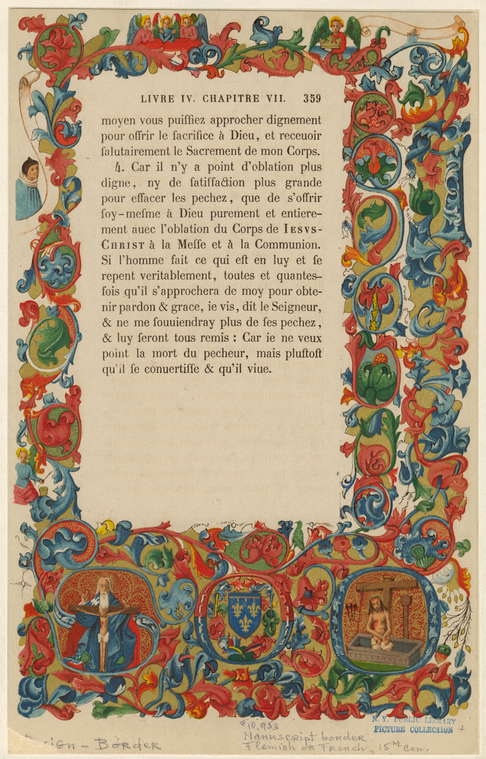 LIVRE IV. CHAPITRE VII. 359
moyen vous puiſſiez approcher dignement
pour offrir le ſacrifice à Dieu, et receuoir
ſalutairement le Sacrement de mon Corps.
4. Car il n'y a point d'oblation plus
digne, ny de ſatiſfaction plus grande
pour effacer les pechez, que de s'offrir
ſoy-meſme à Dieu purement et entiere-
ment auec l'oblation du Corps de IESVS-
CHRIST à la Meſſe et à la Communion.
Si l'homme fait ce qui eſt en luy et ſe
repent veritablement, toutes et quantes-
fois qu'il s'approchera de moy pour obte-
nir pardon & grace, ie vis, dit le Seigneur,
& ne me ſouuiendray plus de ſes pechez,
& luy ſeront tous remis : Car ie ne veux
point la mort du pecheur, mais pluſtoſt
qu'il ſe conuertiſſe & qu'il viue.
N. Y. PUBLIC LIBRARY
PICTURE COLLECTION
Border
Manuscript border
Flemish or French, 15th cen.